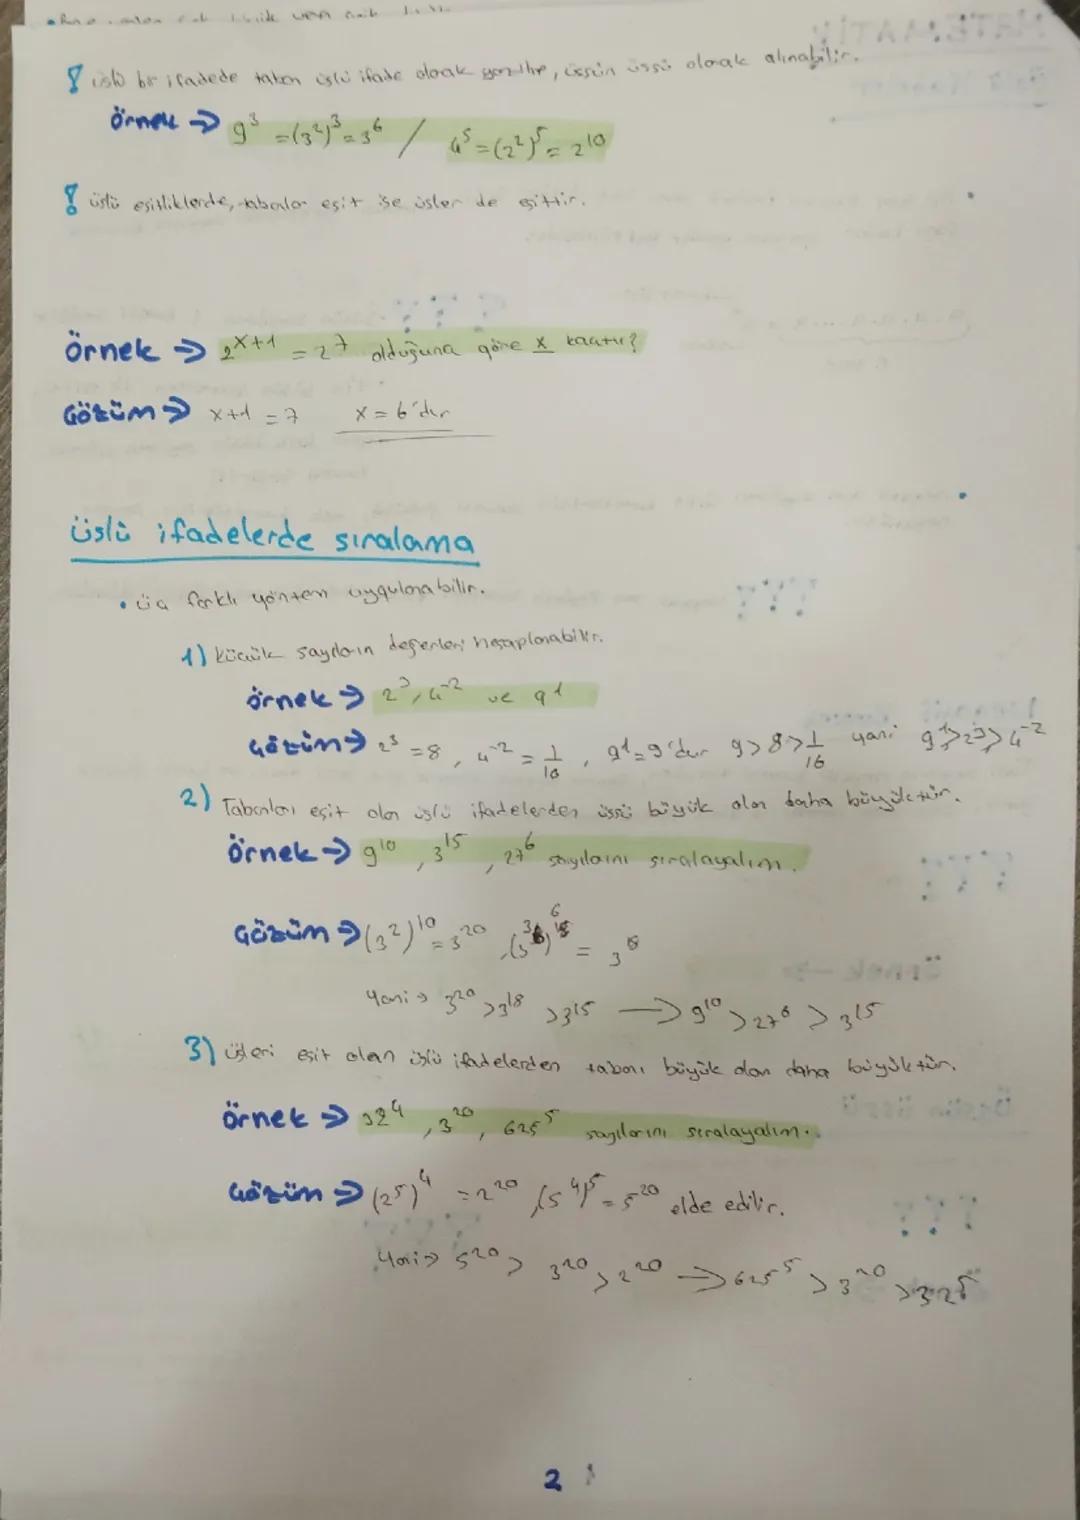 ! üslü bir ifadede taban üslü ifade olarak yazılıp, üssün üssü olarak alınabilir.
Örnek → 9³ = (3²)³ = 3⁶ / 4⁵ = (2²)⁵ = 2¹⁰
! üslü eşitliklerde, tabanlar eşit ise üsler de eşittir.
Örnek → 2ˣ⁺¹ = 2⁷ olduğuna göre x kaçtır?
Çözüm → x+1 = 7 x = 6'dır
üslü ifadelerde sıralama
• üç farklı yöntem uygulanabilir.
1) küçük sayıların değerleri hesaplanabilir.
örnek → 2³, 4⁻² ve 9¹
Çözüm → 2³ = 8, 4⁻² = 1/16, 9¹ = 9'dur 9 > 8 > 1/16 yani 9¹ > 2³ > 4⁻²
2) Tabanları eşit olan üslü ifadelerden üssü büyük olan daha büyüktür.
Örnek → 9¹⁰, 3¹⁵, 27⁶ sayılarını sıralayalım.
Çözüm → (3²)¹⁰ = 3²⁰, (3³)⁶ = 3⁸
Yani → 3²⁰ > 3¹⁸ > 3¹⁵ → 9¹⁰ > 27⁶ > 3¹⁵
3) üsleri eşit olan üslü ifadelerden tabanı büyük olan daha büyüktür.
Örnek → 32⁴, 3²⁰, 625⁵ sayılarını sıralayalım.
Çözüm → (2⁵)⁴ = 2²⁰, (5⁴)⁵ = 5²⁰ elde edilir.
Yani → 5²⁰ > 3²⁰ > 2²⁰ → 625⁵ > 3²⁰ > 32⁵
2